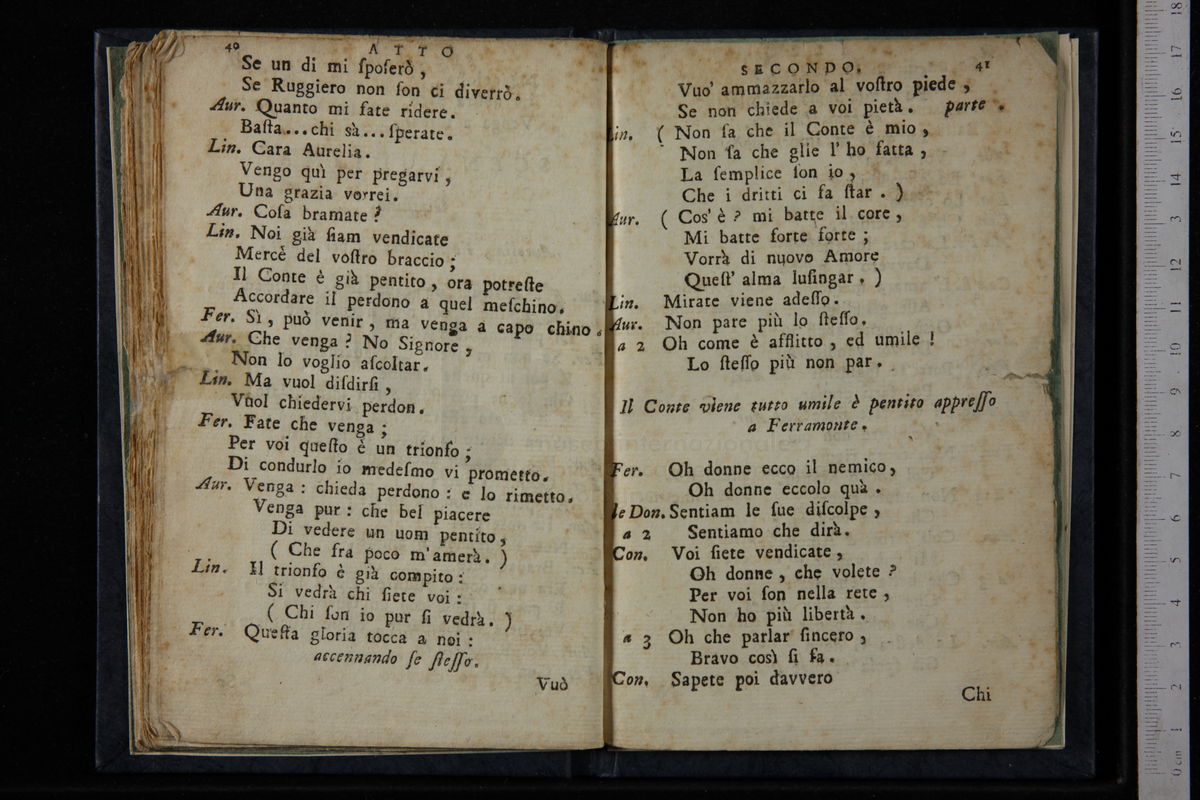 40 ATTO
Se un di mi ſpoſerò ,
Se Ruggiero non ſon ci diverrò.
Aur. Quanto mi fate ridere.
Baſta...chi sà...ſperate.
Lin. Cara Aurelia.
Vengo quì per pregarvi ,
Una grazia vorrei.
Aur. Coſa bramate ?
Lin. Noi già ſiam vendicate
Mercè del voſtro braccio ;
Il Conte è già pentito , ora potreſte
Accordare il perdono a quel meſchino.
Fer. Sì , può venir , ma venga a capo chino .
Aur. Che venga ? No Signore ,
Non lo voglio aſcoltar.
Lin. Ma vuol diſdirſi ,
Vuol chiedervi perdon.
Fer. Fate che venga ;
Per voi queſto è un trionfo ;
Di condurlo io medeſmo vi prometto.
Aur. Venga : chieda perdono : e lo rimetto.
Venga pur : che bel piacere
Di vedere un uom pentito ,
( Che fra poco m'amerà. )
Lin. Il trionfo è già compito :
Si vedrà chi ſiete voi :
( Chi ſon io pur ſi vedrà. )
Fer. Queſta gloria tocca a noi :
accennando ſe ſteſſo.
Vuò
SECONDO. 41
Vuo' ammazzarlo al voſtro piede ,
Se non chiede a voi pietà. parte .
Lin. ( Non ſa che il Conte è mio ,
Non ſa che glie l' ho fatta ,
La ſemplice ſon io ,
Che i dritti ci fa ſtar . )
Aur. ( Cos' è ? mi batte il core ,
Mi batte forte forte ;
Vorrà di nuovo Amore
Queſt' alma luſingar . )
Lin. Mirate viene adeſſo.
Aur. Non pare più lo ſteſſo.
a 2 Oh come è afflitto , ed umile !
Lo ſteſſo più non par .
Il Conte viene tutto umile è pentito appreſſo
a Ferramonte.
Fer. Oh donne ecco il nemico ,
Oh donne eccolo quà .
le Don. Sentiam le ſue diſcolpe ,
a 2 Sentiamo che dirà.
Con. Voi ſiete vendicate ,
Oh donne , che volete ?
Per voi ſon nella rete ,
Non ho più libertà .
a 3 Oh che parlar ſincero ,
Bravo così ſi fa .
Con. Sapete poi davvero
Chi
0 cm 1 2 3 4 5 6 7 8 9 10 11 12 13 14 15 16 17 18